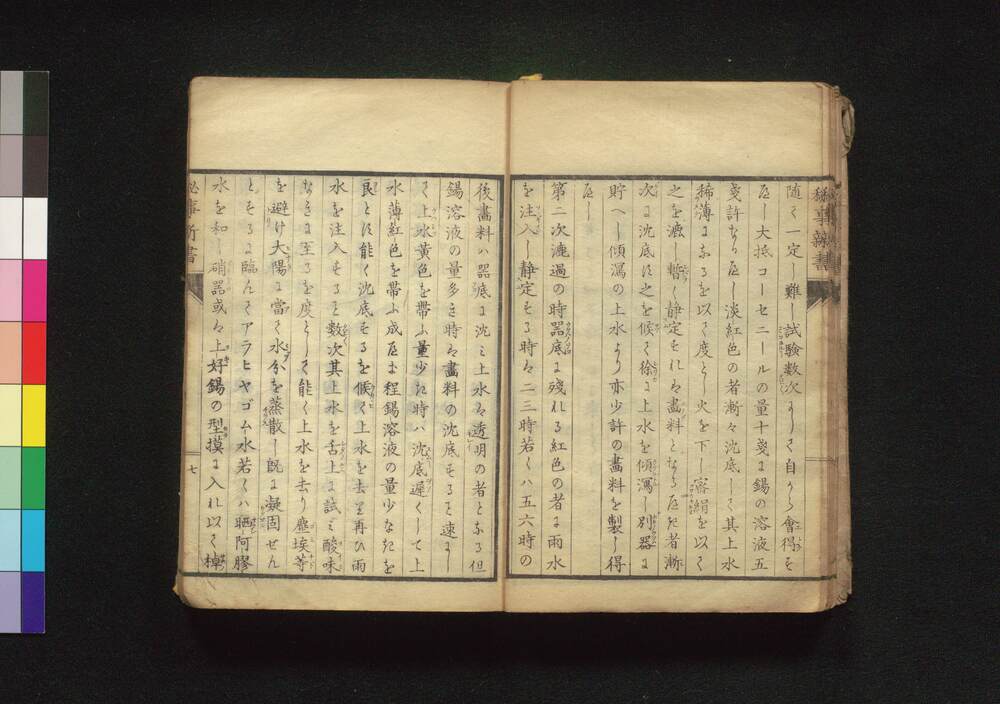 随て一定し難し試験数次にして自から會得す
べし大抵コーセニールの量十戔に錫の溶液五
戔許なるべし淡紅色の者漸々沈底して其上水
稀薄になるを以て度とし火を下し密絹を以て
之を漉し暫く静定すれは畫料となるべき者漸
次に沈底す之を候て徐に上水を傾瀉し別器に
貯へし傾瀉の上水より亦少許の畫料を製し得
べし
第二次漉過の時器底に残れる紅色の者に雨水
を注入し静定する時は二三時若くハ五六時の
後畫料ハ器底に沈み上水は透明の者となる但
錫溶液の量多き時は畫料の沈底する速に
て上水黄色を帶ふ量少き時ハ沈底遅くして上
水薄紅色を帶ふ成べき程錫溶液の量少なきを
良とす能く沈底するを候て上水を去り再ひ雨
水を注入する数次其上水を舌上に試み酸味
なきに至るを度として能く上水を去り塵埃等
を避け大陽に當て水分を蒸散し既に凝固せん
とするに臨んてアラヒヤゴム水若くハ晒阿膠
水を和し硝器或は上好錫の型模に入れ以て
七